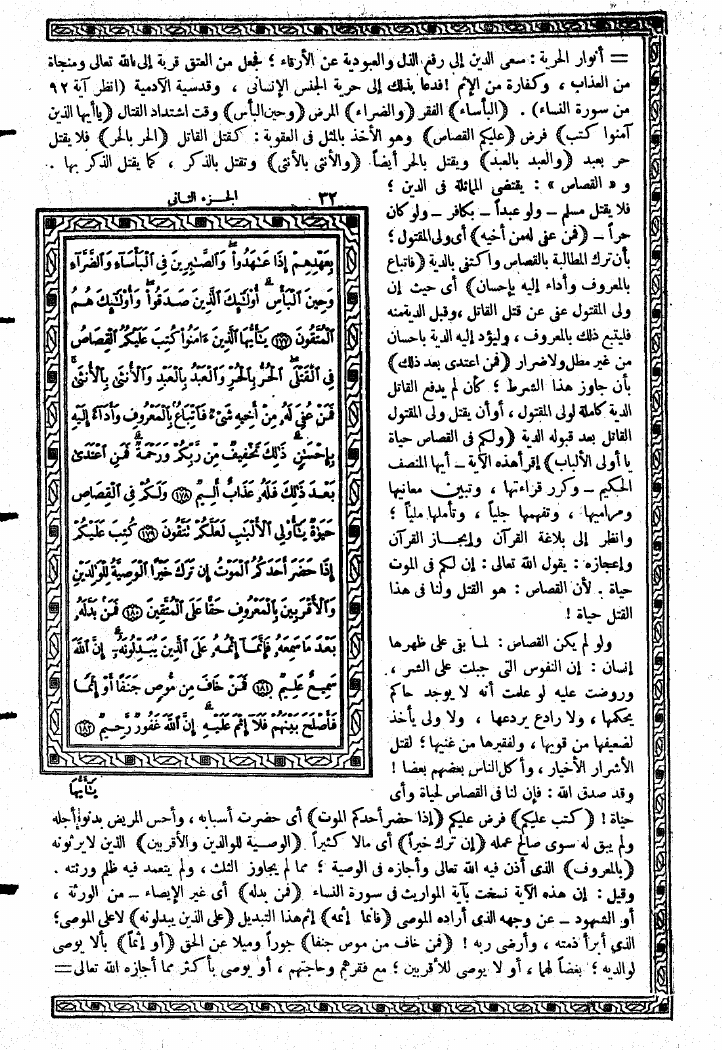 = أنوار الحرية : سعى الدين إلى رفع الذل والعبودية عن الأرقاء ؛ فجعل من العتق قربة إلى الله تعالى ومنجاة
من العذاب ، وكفارة من الإثم ! فدعا بذلك إلى حرية الجنس الإنسانى ، وقدسية الآدمية (انظر آية ٩٢
من سورة النساء) . (البأساء) الفقر (والضراء) المرض (وحين البأس) وقت اشتداد القتال (ياأيها الذين
آمنوا كتب) فرض (عليكم القصاص) وهو الأخذ بالمثل فى العقوبة : كقتل القاتل (الحر بالحر) فلا يقتل
حر بعبد (والعبد بالعبد) ويقتل بالحر أيضاً . (والأنثى بالأنثى) وتقتل بالذكر ، كما يقتل الذكر بها .
و « القصاص » : يقتضى المماثلة فى الدين ؛
فلا يقتل مسلم – ولو عبداً – بكافر – ولو كان
حراً – (فمن عفى له من أخيه) أى ولى المقتول ؛
بأن ترك المطالبة بالقصاص واكتفى بالدية (فاتباع
بالمعروف وأداء إليه بإحسان) أى حيث إن
ولى المقتول عفى عن قتل القاتل ، وقبل الدية منه
فليتبع ذلك بالمعروف ، وليؤد إليه الدية باحسان
من غير مطل ولا ضرار (فمن اعتدى بعد ذلك)
بأن جاوز هذا الشرط ؛ كأن لم يدفع القاتل
الدية كاملة لولى المقتول ، أو أن يقتل ولى المقتول
القاتل بعد قبوله الدية (ولكم فى القصاص حياة
يا أولى الألباب) إقرأ هذه الآية – أيها المنصف
الحكيم – وكرر قراءتها ، وتبين معانيها
ومراميها ، وتفهمها جلياً ، وتأملها ملياً ؛
وانظر إلى بلاغة القرآن وإيجاز القرآن
وإعجازه : يقول الله تعالى : إن لكم فى الموت
حياة . لأن القصاص : هو القتل ولنا فى هذا
القتل حياة !
ولو لم يكن القصاص : لما بقى على ظهرها
إنسان : إن النفوس التى جبلت على الشر ،
وروضت عليه لو علمت أنه لا يوجد حاكم
يحكمها ، ولا رادع يردعها ، ولا ولى يأخذ
لضعيفها من قويها ، ولفقيرها من غنيها ؛ لقتل
الأشرار الأخيار ، وأكل الناس بعضهم بعضا !
وقد صدق الله : فإن لنا فى القصاص لحياة وأى
٣٢ الجزء الثانى
بِعَهْدِهِمْ إِذَا عَٰهَدُواْ ۖ وَالصَّٰبِرِينَ فِى الْبَأْسَآءِ وَالضَّرَّآءِ
وَحِينَ الْبَأْسِ ۗ أُوْلَٰٓئِكَ الَّذِينَ صَدَقُواْ ۖ وَأُوْلَٰٓئِكَ هُمُ
الْمُتَّقُونَ ﴿١٧٧﴾ يَٰٓأَيُّهَا الَّذِينَ ءَامَنُواْ كُتِبَ عَلَيْكُمُ الْقِصَاصُ
فِى الْقَتْلَى ۖ الْحُرُّ بِالْحُرِّ وَالْعَبْدُ بِالْعَبْدِ وَالْأُنثَىٰ بِالْأُنثَىٰ ۚ
فَمَنْ عُفِىَ لَهُۥ مِنْ أَخِيهِ شَىْءٌ فَاتِّبَاعٌۢ بِالْمَعْرُوفِ وَأَدَآءٌ إِلَيْهِ
بِإِحْسَٰنٍ ۗ ذَٰلِكَ تَخْفِيفٌ مِّن رَّبِّكُمْ وَرَحْمَةٌ ۗ فَمَنِ اعْتَدَىٰ
بَعْدَ ذَٰلِكَ فَلَهُۥ عَذَابٌ أَلِيمٌ ﴿١٧٨﴾ وَلَكُمْ فِى الْقِصَاصِ
حَيَوٰةٌ يَٰٓأُوْلِى الْأَلْبَٰبِ لَعَلَّكُمْ تَتَّقُونَ ﴿١٧٩﴾ كُتِبَ عَلَيْكُمْ
إِذَا حَضَرَ أَحَدَكُمُ الْمَوْتُ إِن تَرَكَ خَيْرًا الْوَصِيَّةُ لِلْوَٰلِدَيْنِ
وَالْأَقْرَبِينَ بِالْمَعْرُوفِ حَقًّا عَلَى الْمُتَّقِينَ ﴿١٨٠﴾ فَمَنۢ بَدَّلَهُۥ
بَعْدَ مَا سَمِعَهُۥ فَإِنَّمَآ إِثْمُهُۥ عَلَى الَّذِينَ يُبَدِّلُونَهُۥٓ ۚ إِنَّ اللَّهَ
سَمِيعٌ عَلِيمٌ ﴿١٨١﴾ فَمَنْ خَافَ مِن مُّوصٍ جَنَفًا أَوْ إِثْمًا
فَأَصْلَحَ بَيْنَهُمْ فَلَآ إِثْمَ عَلَيْهِ ۚ إِنَّ اللَّهَ غَفُورٌ رَّحِيمٌ ﴿١٨٢﴾
يَٰٓأَيُّهَا
حياة ! (كتب عليكم) فرض عليكم (إذا حضر أحدكم الموت) أى حضرت أسبابه ، وأحس المريض بدنو أجله
ولم يبق له سوى صالح عمله (إن ترك خيراً) أى مالا كثيراً . (الوصية للوالدين والأقربين) الذين لا يرثونه
(بالمعروف) الذى أذن فيه الله تعالى وأجازه فى الوصية ؛ مما لم يجاوز الثلث ، ولم يتعمد فيه ظلم ورثته .
وقيل : إن هذه الآية نسخت بآية المواريث فى سورة النساء (فمن بدله) أى غير الإيصاء – من الورثة ،
أو الشهود – عن وجهه الذى أراده الموصى (فانما إثمه) إثم هذا التبديل (على الذين يبدلونه) لا على الموصى ؛
الذى أبرأ ذمته ، وأرضى ربه ! (فمن خاف من موص جنفا) جوراً وميلا عن الحق (أو إثماً) بألا يوصى
لوالديه ؛ بغضاً لهما ، أو لا يوصى للأقربين ؛ مع فقرهم وحاجتهم ، أو يوصى بأكثر مما أجازه الله تعالى =